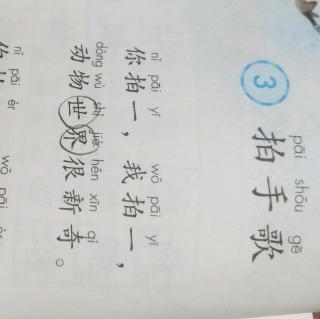 pāi shǒu gē
3 拍手歌
nǐ pāi yī wǒ pāi yī
你拍一，我拍一，
dòng wù shì jiè hěn xīn qí
动物世界很新奇。
nǐ pāi èr wǒ pāi èr